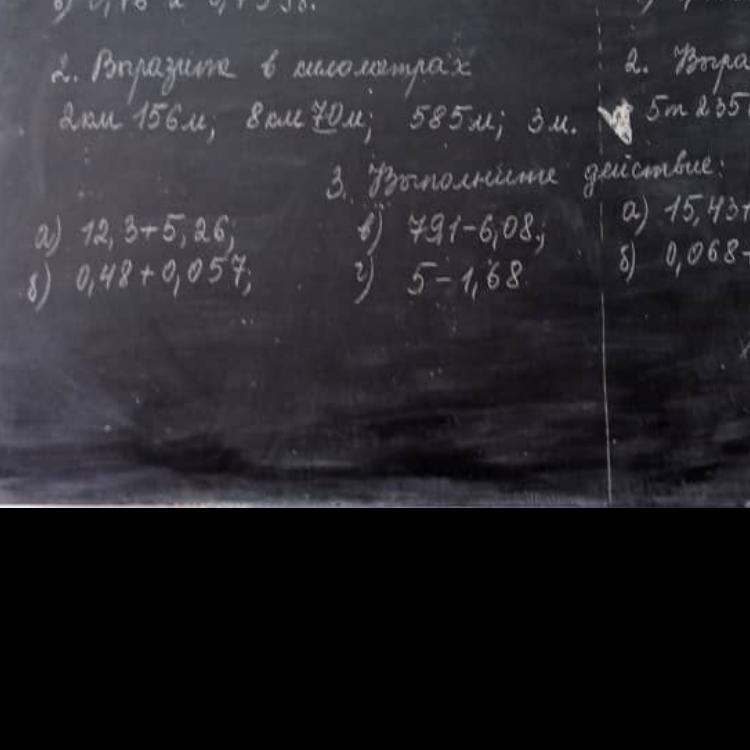 2. Выразите в километрах
2км 156м; 8км 70м; 585м; 3м.
3. Выполните действие:
а) 12,3+5,26; в) 791-6,08;
б) 0,48+0,057; г) 5-1,68
2. Выра
5т 235
а) 15,43+
б) 0,068-